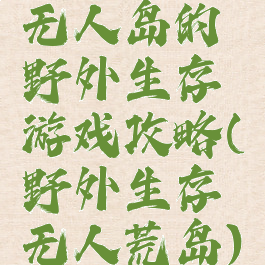 无人岛的
野外生存
游戏攻略(
野外生存
无人荒岛)